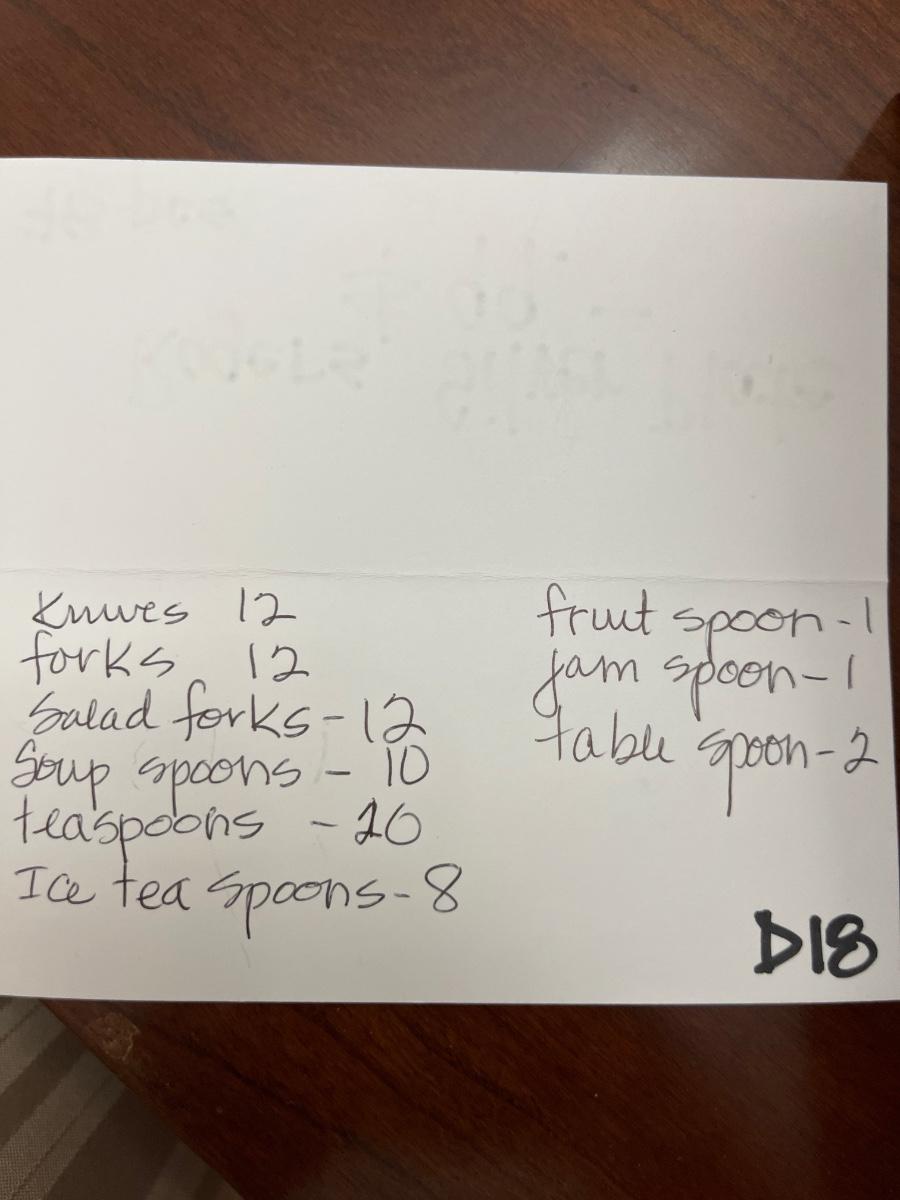 Knives 12
forks 12
Salad forks - 12
Soup spoons - 10
teaspoons - 20
Ice tea spoons - 8
fruit spoon - 1
jam spoon - 1
table spoon - 2
D18